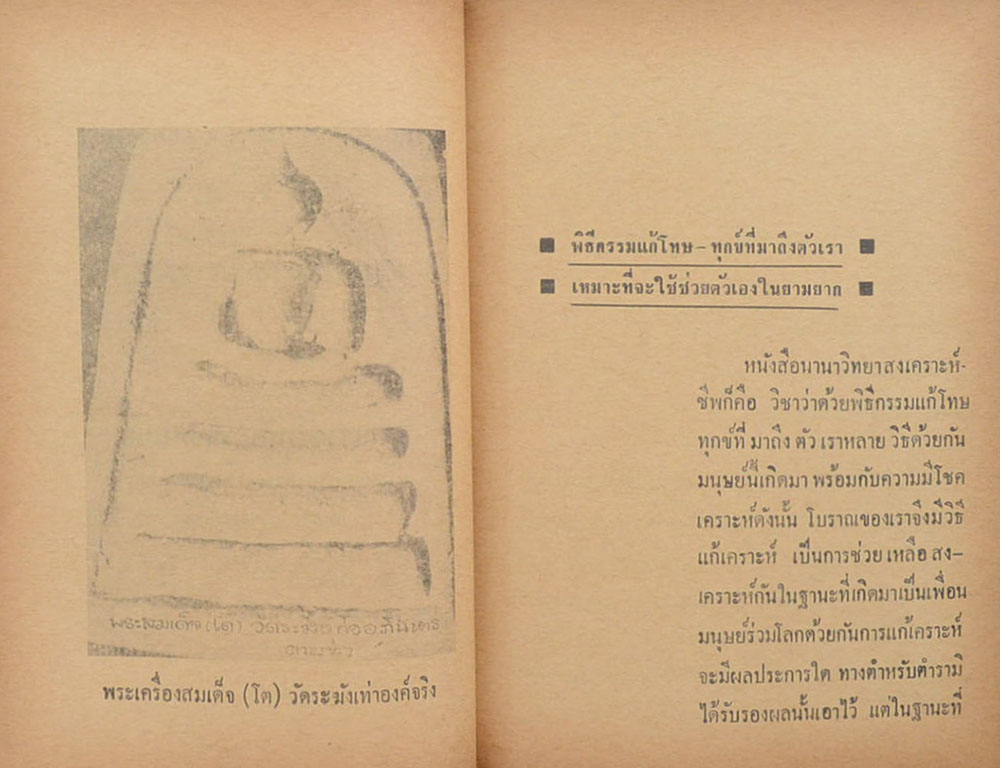 พระสมเด็จ (โต) วัดระฆัง
พระเครื่องสมเด็จ (โต) วัดระฆังเท่าองค์จริง
พิธีกรรมแก้โทษ – ทุกข์ที่มาถึงตัวเรา
เหมาะที่จะใช้ช่วยตัวเองในยามยาก
หนังสือนานาวิทยาสงเคราะห์-
ชีพก็คือ วิชาว่าด้วยพิธีกรรมแก้โทษ
ทุกข์ที่ มาถึง ตัว เราหลาย วิธีด้วยกัน
มนุษย์นี้เกิดมา พร้อมกับความมีโชค
เคราะห์ดังนั้น โบราณของเราจึงมีวิธี
แก้เคราะห์ เป็นการช่วย เหลือ สง–
เคราะห์กันในฐานะที่เกิดมาเป็นเพื่อน
มนุษย์ร่วมโลกด้วยกันการแก้เคราะห์
จะมีผลประการใด ทางตำหรับตำรามิ
ได้รับรองผลนั้นเอาไว้ แต่ในฐานะที่